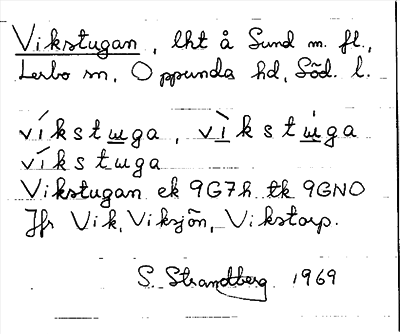 Vikstugan, lht å Sund m. fl.,
Lerbo sn, Oppunda hd, Söd. l.
víkstuga, vìkstu̇ga
víkstuga
Vikstugan ek 9G7h tk 9GNO
Jfr Vik, Viksjön, Vikstorp.
S. Strandberg 1969